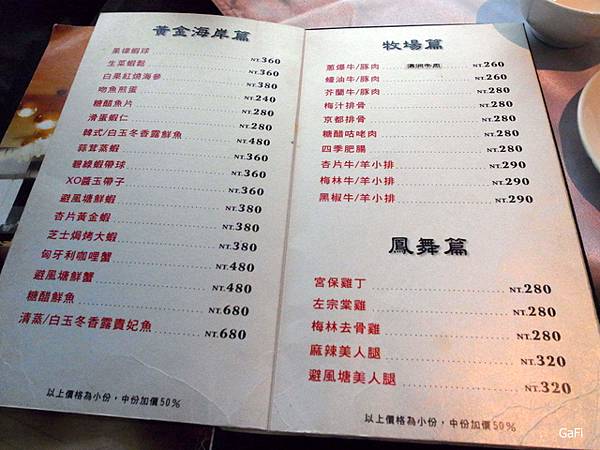 黃金海岸篇
果律蝦球 NT.360
生菜蝦鬆 NT.360
白果紅燒海參 NT.380
吻魚煎蛋 NT.240
糖醋魚片 NT.280
滑蛋蝦仁 NT.280
韓式/白玉冬香露鮮魚 NT.480
蒜茸蒸蝦 NT.360
碧綠蝦帶球 NT.360
XO醬玉帶子 NT.360
避風塘鮮蝦 NT.380
杏片黃金蝦 NT.380
芝士焗烤大蝦 NT.380
匈牙利咖哩蟹 NT.480
避風塘鮮蟹 NT.480
糖醋鮮魚 NT.680
清蒸/白玉冬香露貴妃魚 NT.680
以上價格為小份，中份加價50%
牧場篇
蔥爆牛/豚肉 NT.260
蠔油牛/豚肉 NT.260
芥蘭牛/豚肉 NT.260
梅汁排骨 NT.280
京都排骨 NT.280
糖醋咕咾肉 NT.280
四季肥腸 NT.280
杏片牛/羊小排 NT.290
梅林牛/羊小排 NT.290
黑椒牛/羊小排 NT.290
鳳舞篇
宮保雞丁 NT.280
左宗棠雞 NT.280
梅林去骨雞 NT.280
麻辣美人腿 NT.320
避風塘美人腿 NT.320
以上價格為小份，中份加價50%
GaFi